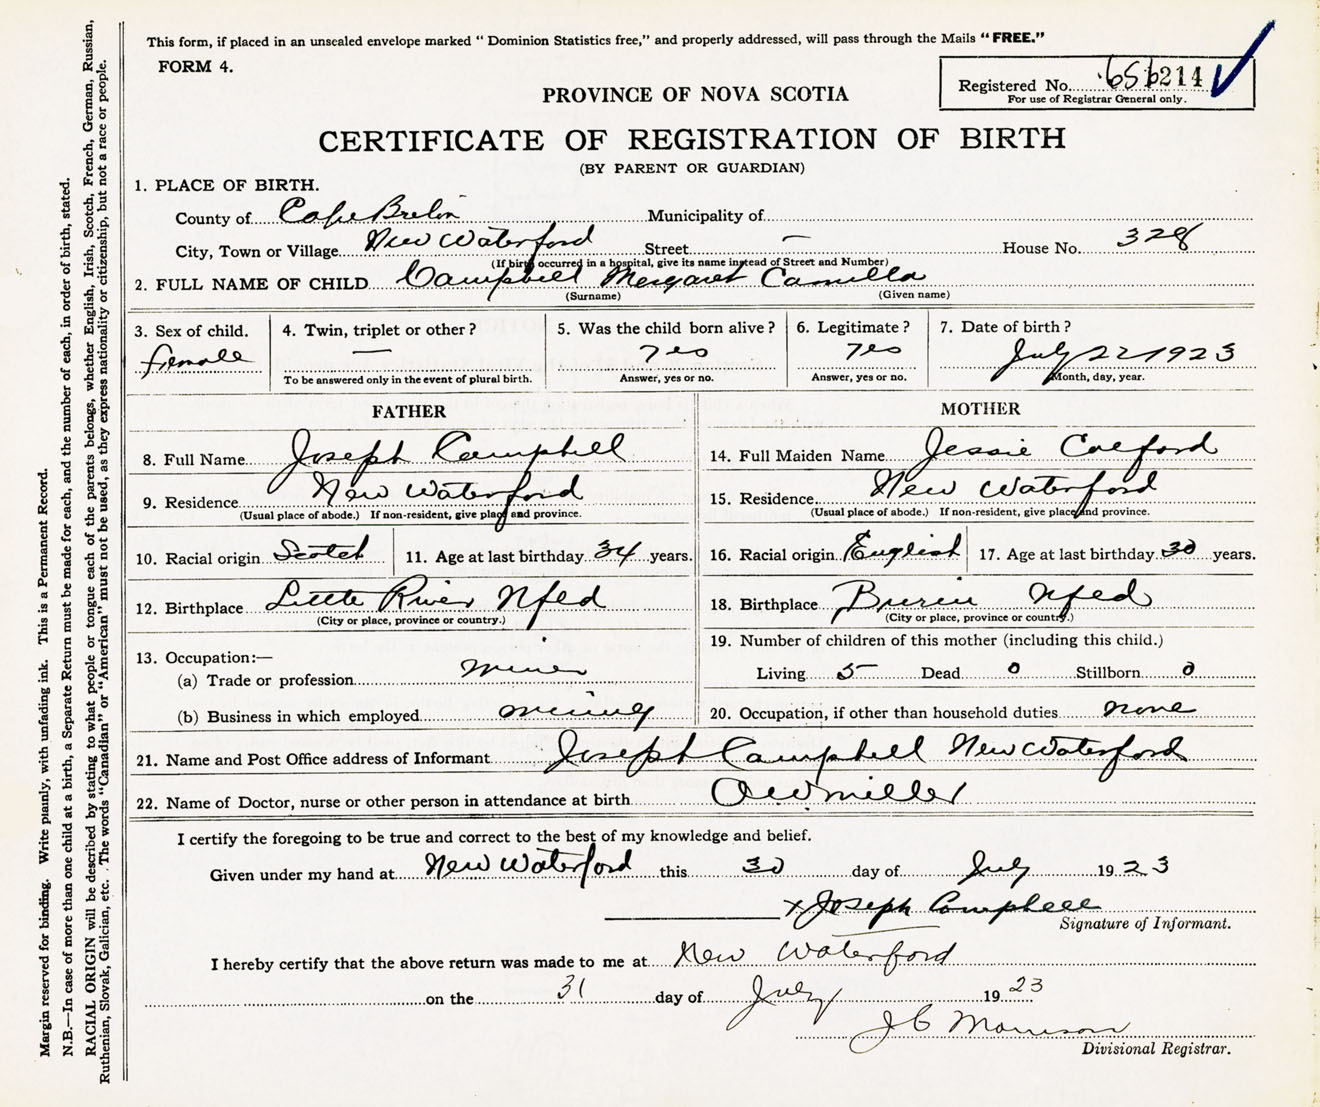 This form, if placed in an unsealed envelope marked " Dominion Statistics free," and properly addressed, will pass through the Mails "FREE."
FORM 4.
Registered No. 656214
For use of Registrar General only.
PROVINCE OF NOVA SCOTIA
CERTIFICATE OF REGISTRATION OF BIRTH
(BY PARENT OR GUARDIAN)
1. PLACE OF BIRTH.
County of Cape Breton Municipality of
City, Town or Village New Waterford Street — House No. 328
(If birth occurred in a hospital, give its name instead of Street and Number)
2. FULL NAME OF CHILD Campbell Margaret Camilla
(Surname) (Given name)
3. Sex of child. 4. Twin, triplet or other? 5. Was the child born alive? 6. Legitimate? 7. Date of birth?
female — Yes Yes July 22 1923
To be answered only in the event of plural birth. Answer, yes or no. Answer, yes or no. Month, day, year.
FATHER MOTHER
8. Full Name Joseph Campbell 14. Full Maiden Name Jessie Colford
9. Residence New Waterford 15. Residence New Waterford
(Usual place of abode.) If non-resident, give place and province. (Usual place of abode.) If non-resident, give place and province.
10. Racial origin Scotch 11. Age at last birthday 34 years. 16. Racial origin English 17. Age at last birthday 30 years.
12. Birthplace Little River Nfld 18. Birthplace Burin Nfld
(City or place, province or country.) (City or place, province or country.)
19. Number of children of this mother (including this child.)
13. Occupation:—
(a) Trade or profession miner Living 5 Dead 0 Stillborn 0
(b) Business in which employed mining 20. Occupation, if other than household duties none
21. Name and Post Office address of Informant Joseph Campbell New Waterford
22. Name of Doctor, nurse or other person in attendance at birth O W Miller
I certify the foregoing to be true and correct to the best of my knowledge and belief.
Given under my hand at New Waterford this 30 day of July 1923
x Joseph Campbell
Signature of Informant.
I hereby certify that the above return was made to me at New Waterford
on the 31 day of July 1923
J C Morrison
Divisional Registrar.
Margin reserved for binding. Write plainly, with unfading ink. This is a Permanent Record.
N.B.—In case of more than one child at a birth, a Separate Return must be made for each, and the number of each, in order of birth, stated.
RACIAL ORIGIN will be described by stating to what people or tongue each of the parents belongs, whether English, Irish, Scotch, French, German, Russian,
Ruthenian, Slovak, Galician, etc. The words "Canadian" or "American" must not be used, as they express nationality or citizenship, but not a race or people.